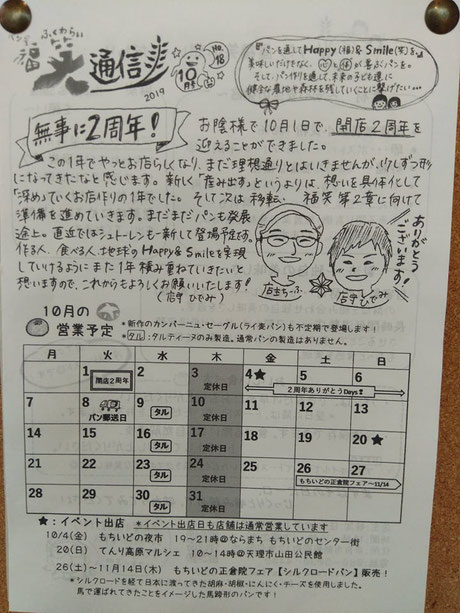 パン屋
ふくわらい
福笑 通信
No.18
10月号
2019
『パンを通してHappy(福)&Smile(笑)を。』
美味しいだけでなく、心と体が喜ぶパンを。
そして、パン作りを通して、未来の子ども達に
健全な農地や森林を残していくことに繋げたい…
無事に2周年！
お陰様で10月1日で、開店2周年を
迎えることができました。
この1年でやっとお店らしくなり、まだ理想通りとはいきませんが、少しずつ形
になってきたなと感じます。新しく「産み出す」というよりは、想いを具体化して
「深めて」いくお店作りの1年でした。そして次は移転、福笑第2章に向けて
準備を進めていきます。まだまだパンも発展
途上。直近ではシュトーレンも一新して登場予定です。
作る人、食べる人、地球のHappy&Smileを実現
していけるようにまた1年積み重ねていきたいと
想いますので、これからもよろしくお願いいたします！
(店守ひでみ)
ありがとう
ございます！
店主ちーふ
店守ひでみ
10月の
営業予定
*新作のカンパーニュ・セーグル(ライ麦パン)も不定期で登場します！
*タル:タルティーヌのみ製造。通常パンの製造はありません。
月 火 水 木 金 土 日
1 2 3 4★ 5 6
開店2周年 定休日 2周年ありがとうDays
7 8 9 10 11 12 13
パン郵送日 タル 定休日
14 15 16 17 18 19 20★
タル 定休日
21 22 23 24 25 26 27
タル 定休日 もちいどの正倉院フェア〜11/14
28 29 30 31
タル 定休日
★:イベント出店 *イベント出店日も店舗は通常営業しています
10/4(金) もちいどの夜市 19〜21時@ならまち もちいどのセンター街
20(日) てんり高原マルシェ 10〜14時@天理市山田公民館
26(土)〜11月14日(木) もちいどの正倉院フェア【シルクロードパン】販売！
*シルクロードを経て日本に渡ってきた胡麻・胡椒・にんにく・チーズを使用しました。
馬で運ばれてきたことをイメージした馬蹄形のパンです！